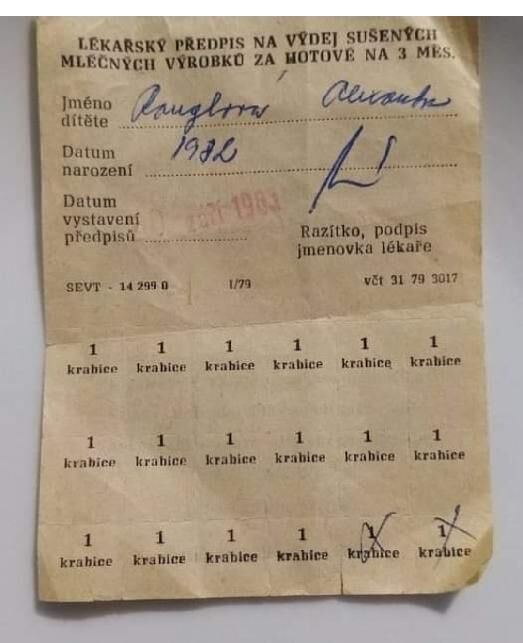 LÉKAŘSKÝ PŘEDPIS NA VÝDEJ SUŠENÝCH
MLÉČNÝCH VÝROBKŮ ZA HOTOVÉ NA 3 MĚS.
Jméno
dítěte
Datum 1982
narození
Datum
vystavení září 1983
předpisů
Razítko, podpis
jmenovka lékaře
SEVT - 14 299 0 I/79 včt 31 79 3017
1 1 1 1 1 1
krabice krabice krabice krabice krabice krabice
1 1 1 1 1 1
krabice krabice krabice krabice krabice krabice
1 1 1 1 1 1
krabice krabice krabice krabice krabice krabice